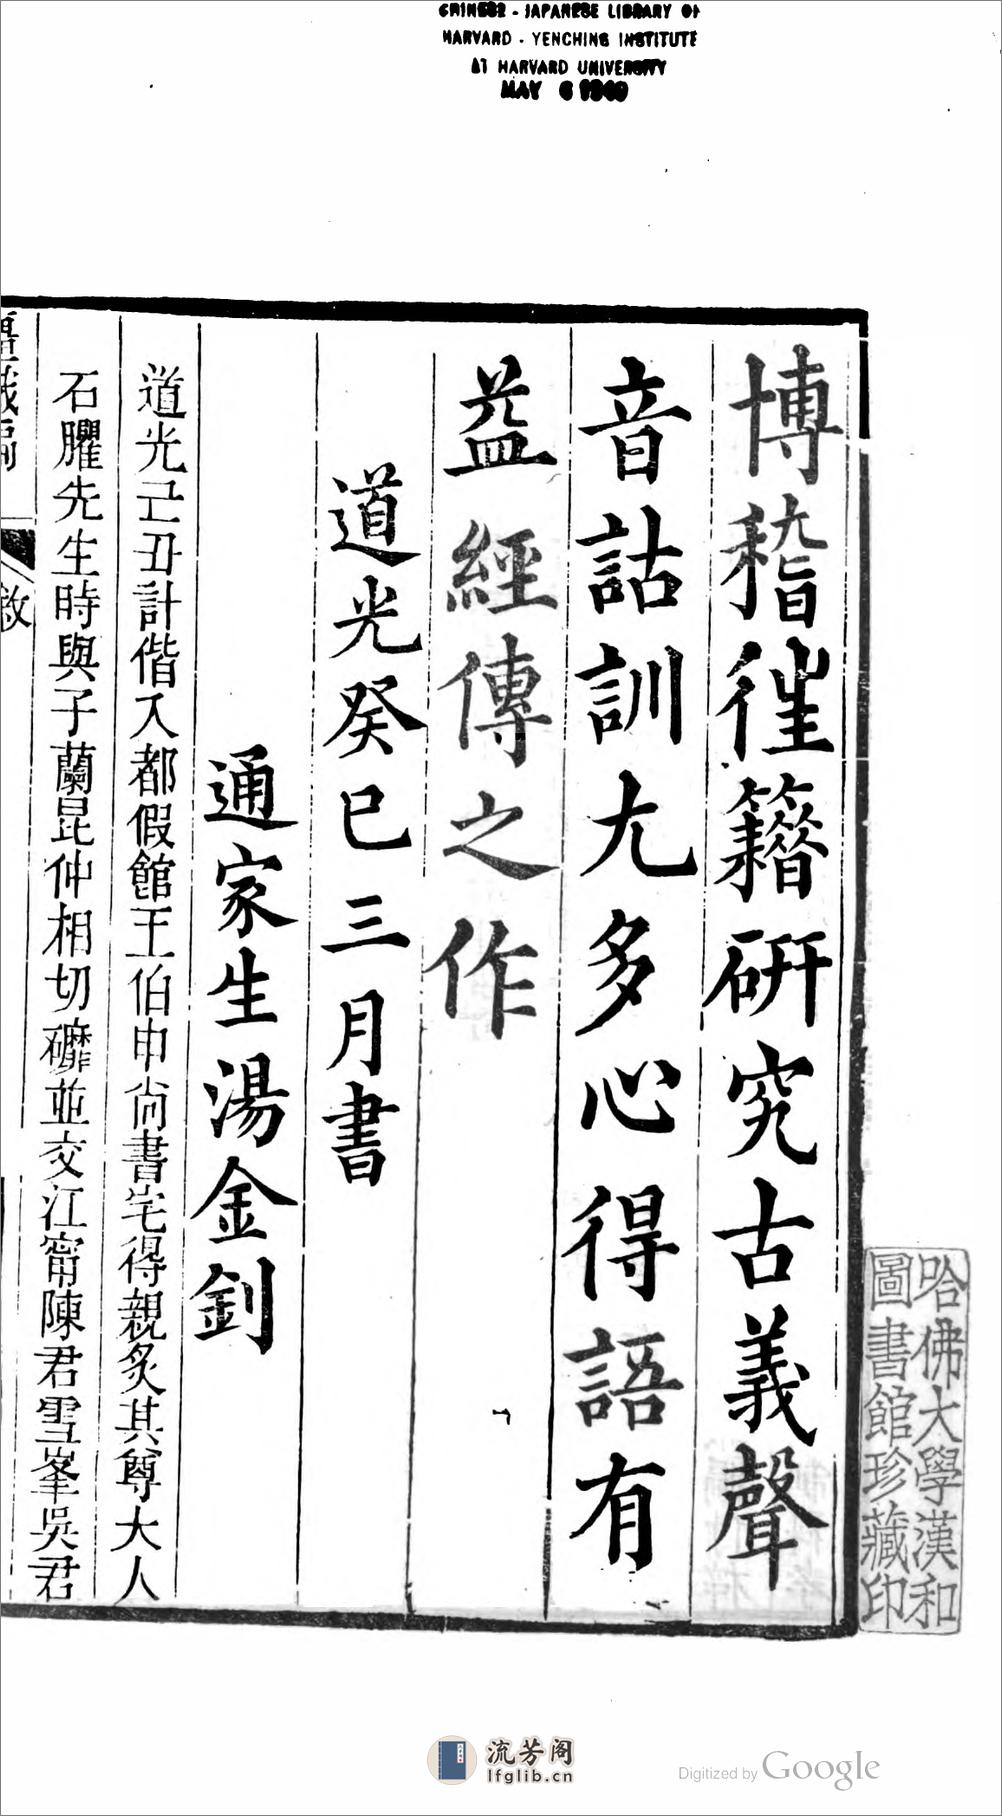 CHINESE - JAPANESE LIBRARY OF
HARVARD - YENCHING INSTITUTE
AT HARVARD UNIVERSITY
MAY 6 1960
博稽往籍研究古義聲
音詁訓尤多心得語有
益經傳之作
道光癸巳三月書
通家生湯金釗
道光己丑計偕入都假館王伯申尚書宅得親炙其尊大人
石臞先生時與子蘭昆仲相切礳並交江甯陳君雪峯吳君
敘
哈佛大學漢和
圖書館珍藏印
流芳阁
lfglib.cn
Digitized by Google